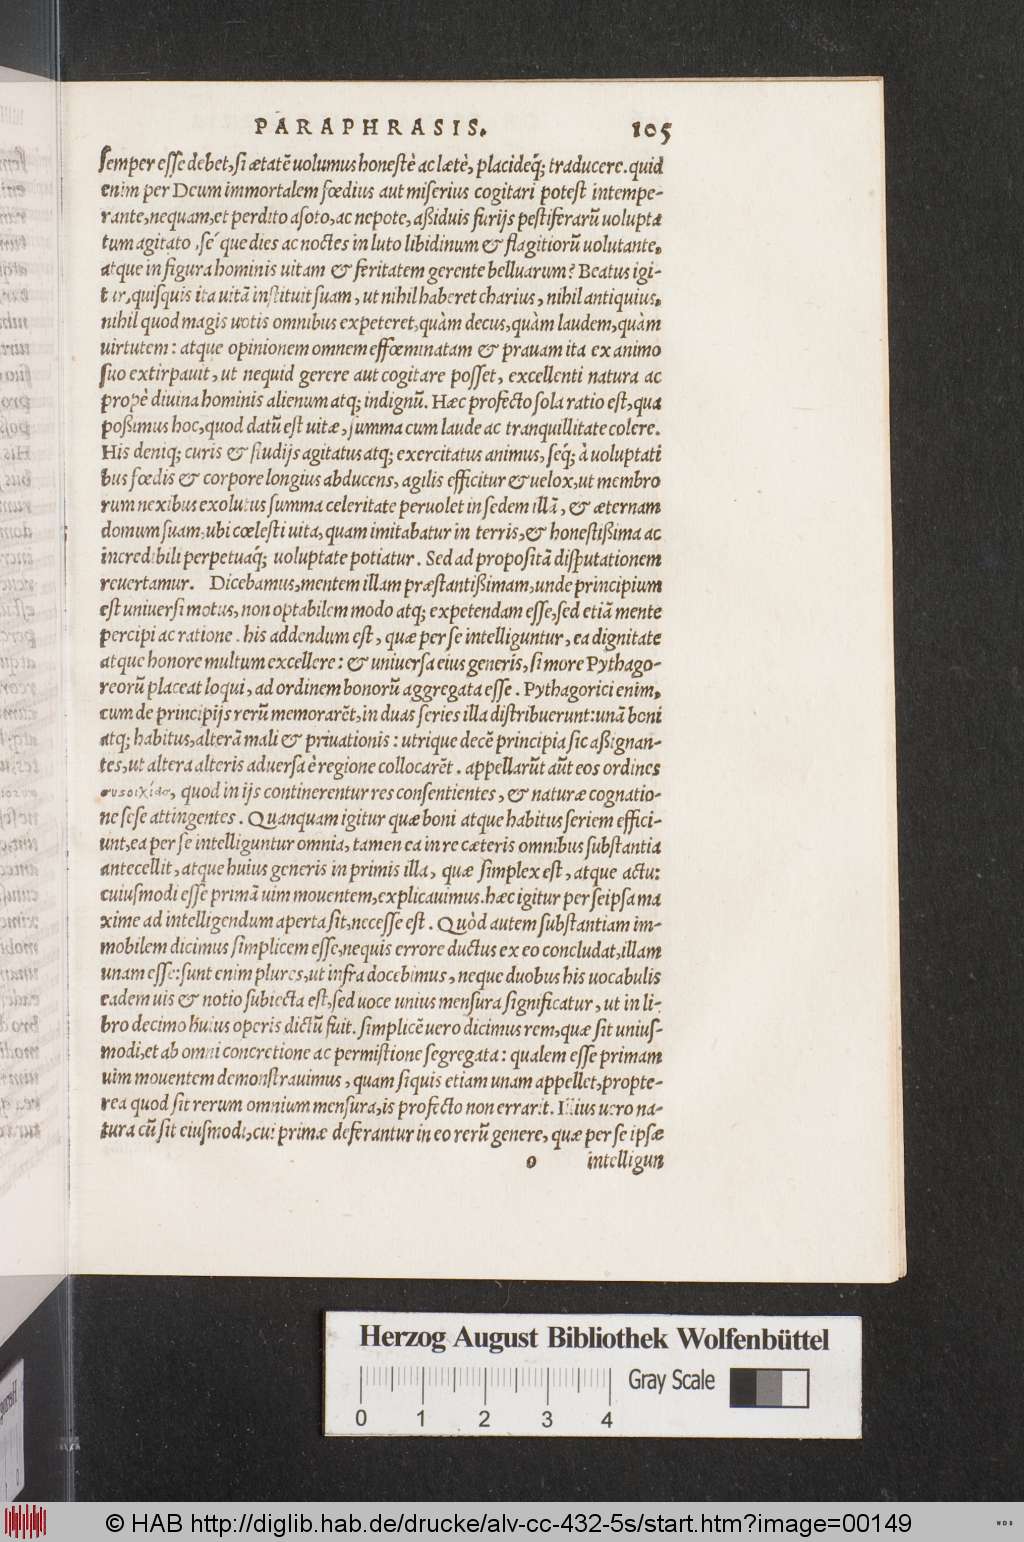 PARAPHRASIS. 105
semper esse debet, si ætatē uolumus honestè ac lætè, placideq́; traducere. quid
enim per Deum immortalem fœdius aut miserius cogitari potest intempe-
rante, nequam, et perdito asoto, ac nepote, aßiduis furijs pestiferarū uolupta
tum agitato, sé que dies ac noctes in luto libidinum & flagitiorū uolutante,
atque in figura hominis uitam & feritatem gerente belluarum? Beatus igi-
tur, quisquis ita uitā instituit suam, ut nihil haberet charius, nihil antiquius,
nihil quod magis uotis omnibus expeteret, quàm decus, quàm laudem, quàm
uirtutem: atque opinionem omnem effœminatam & prauam ita ex animo
suo extirpauit, ut nequid gerere aut cogitare posset, excellenti natura ac
propè diuina hominis alienum atq; indignū. Hæc profecto sola ratio est, qua
poßimus hoc, quod datū est uitæ, summa cum laude ac tranquillitate colere.
His deniq; curis & studijs agitatus atq; exercitatus animus, seq́; à uoluptati
bus fœdis & corpore longius abducens, agilis efficitur & uelox, ut membro
rum nexibus exolutus summa celeritate peruolet in sedem illā, & æternam
domum suam, ubi cœlesti uita, quam imitabatur in terris, & honestißima ac
incredibili perpetuaq́; uoluptate potiatur. Sed ad propositā disputationem
reuertamur. Dicebamus, mentem illam præstantißimam, unde principium
est uniuersi motus, non optabilem modo atq; expetendam esse, sed etiā mente
percipi ac ratione. his addendum est, quæ per se intelliguntur, ea dignitate
atque honore multum excellere: & uniuersa eius generis, si more Pythago-
reorū placeat loqui, ad ordinem bonorū aggregata esse. Pythagorici enim,
cum de principijs rerū memorarēt, in duas series illa distribuerunt: unā boni
atq; habitus, alterā mali & priuationis: utrique decē principia sic aßignan-
tes, ut altera alteris aduersa è regione collocarēt. appellarūt aūt eos ordines
συσοιχίας, quod in ijs continerentur res consentientes, & naturæ cognatio-
ne sese attingentes. Quanquam igitur quæ boni atque habitus seriem effici-
unt, ea per se intelliguntur omnia, tamen ea in re cæteris omnibus substantia
antecellit, atque huius generis in primis illa, quæ simplex est, atque actu:
cuiusmodi esse primā uim mouentem, explicauimus. hæc igitur per seipsa ma
xime ad intelligendum aperta sit, necesse est. Quòd autem substantiam im-
mobilem dicimus simplicem esse, nequis errore ductus ex eo concludat, illam
unam esse: sunt enim plures, ut infra docebimus, neque duobus his uocabulis
eadem uis & notio subiecta est, sed uoce unius mensura significatur, ut in li-
bro decimo huius operis dictū fuit. simplicē uero dicimus rem, quæ sit unius-
modi, et ab omni concretione ac permistione segregata: qualem esse primam
uim mouentem demonstrauimus, quam siquis etiam unam appellet, propte-
rea quod sit rerum omnium mensura, is profecto non errarit. Illius uero na-
tura cū sit eiusmodi, cui primæ deferantur in eo rerū genere, quæ per se ipsæ
o intelligun
Herzog August Bibliothek Wolfenbüttel
0 1 2 3 4 Gray Scale
© HAB http://diglib.hab.de/drucke/alv-cc-432-5s/start.htm?image=00149